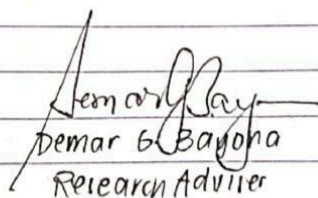 Demar G. Bayona
Research Adviser